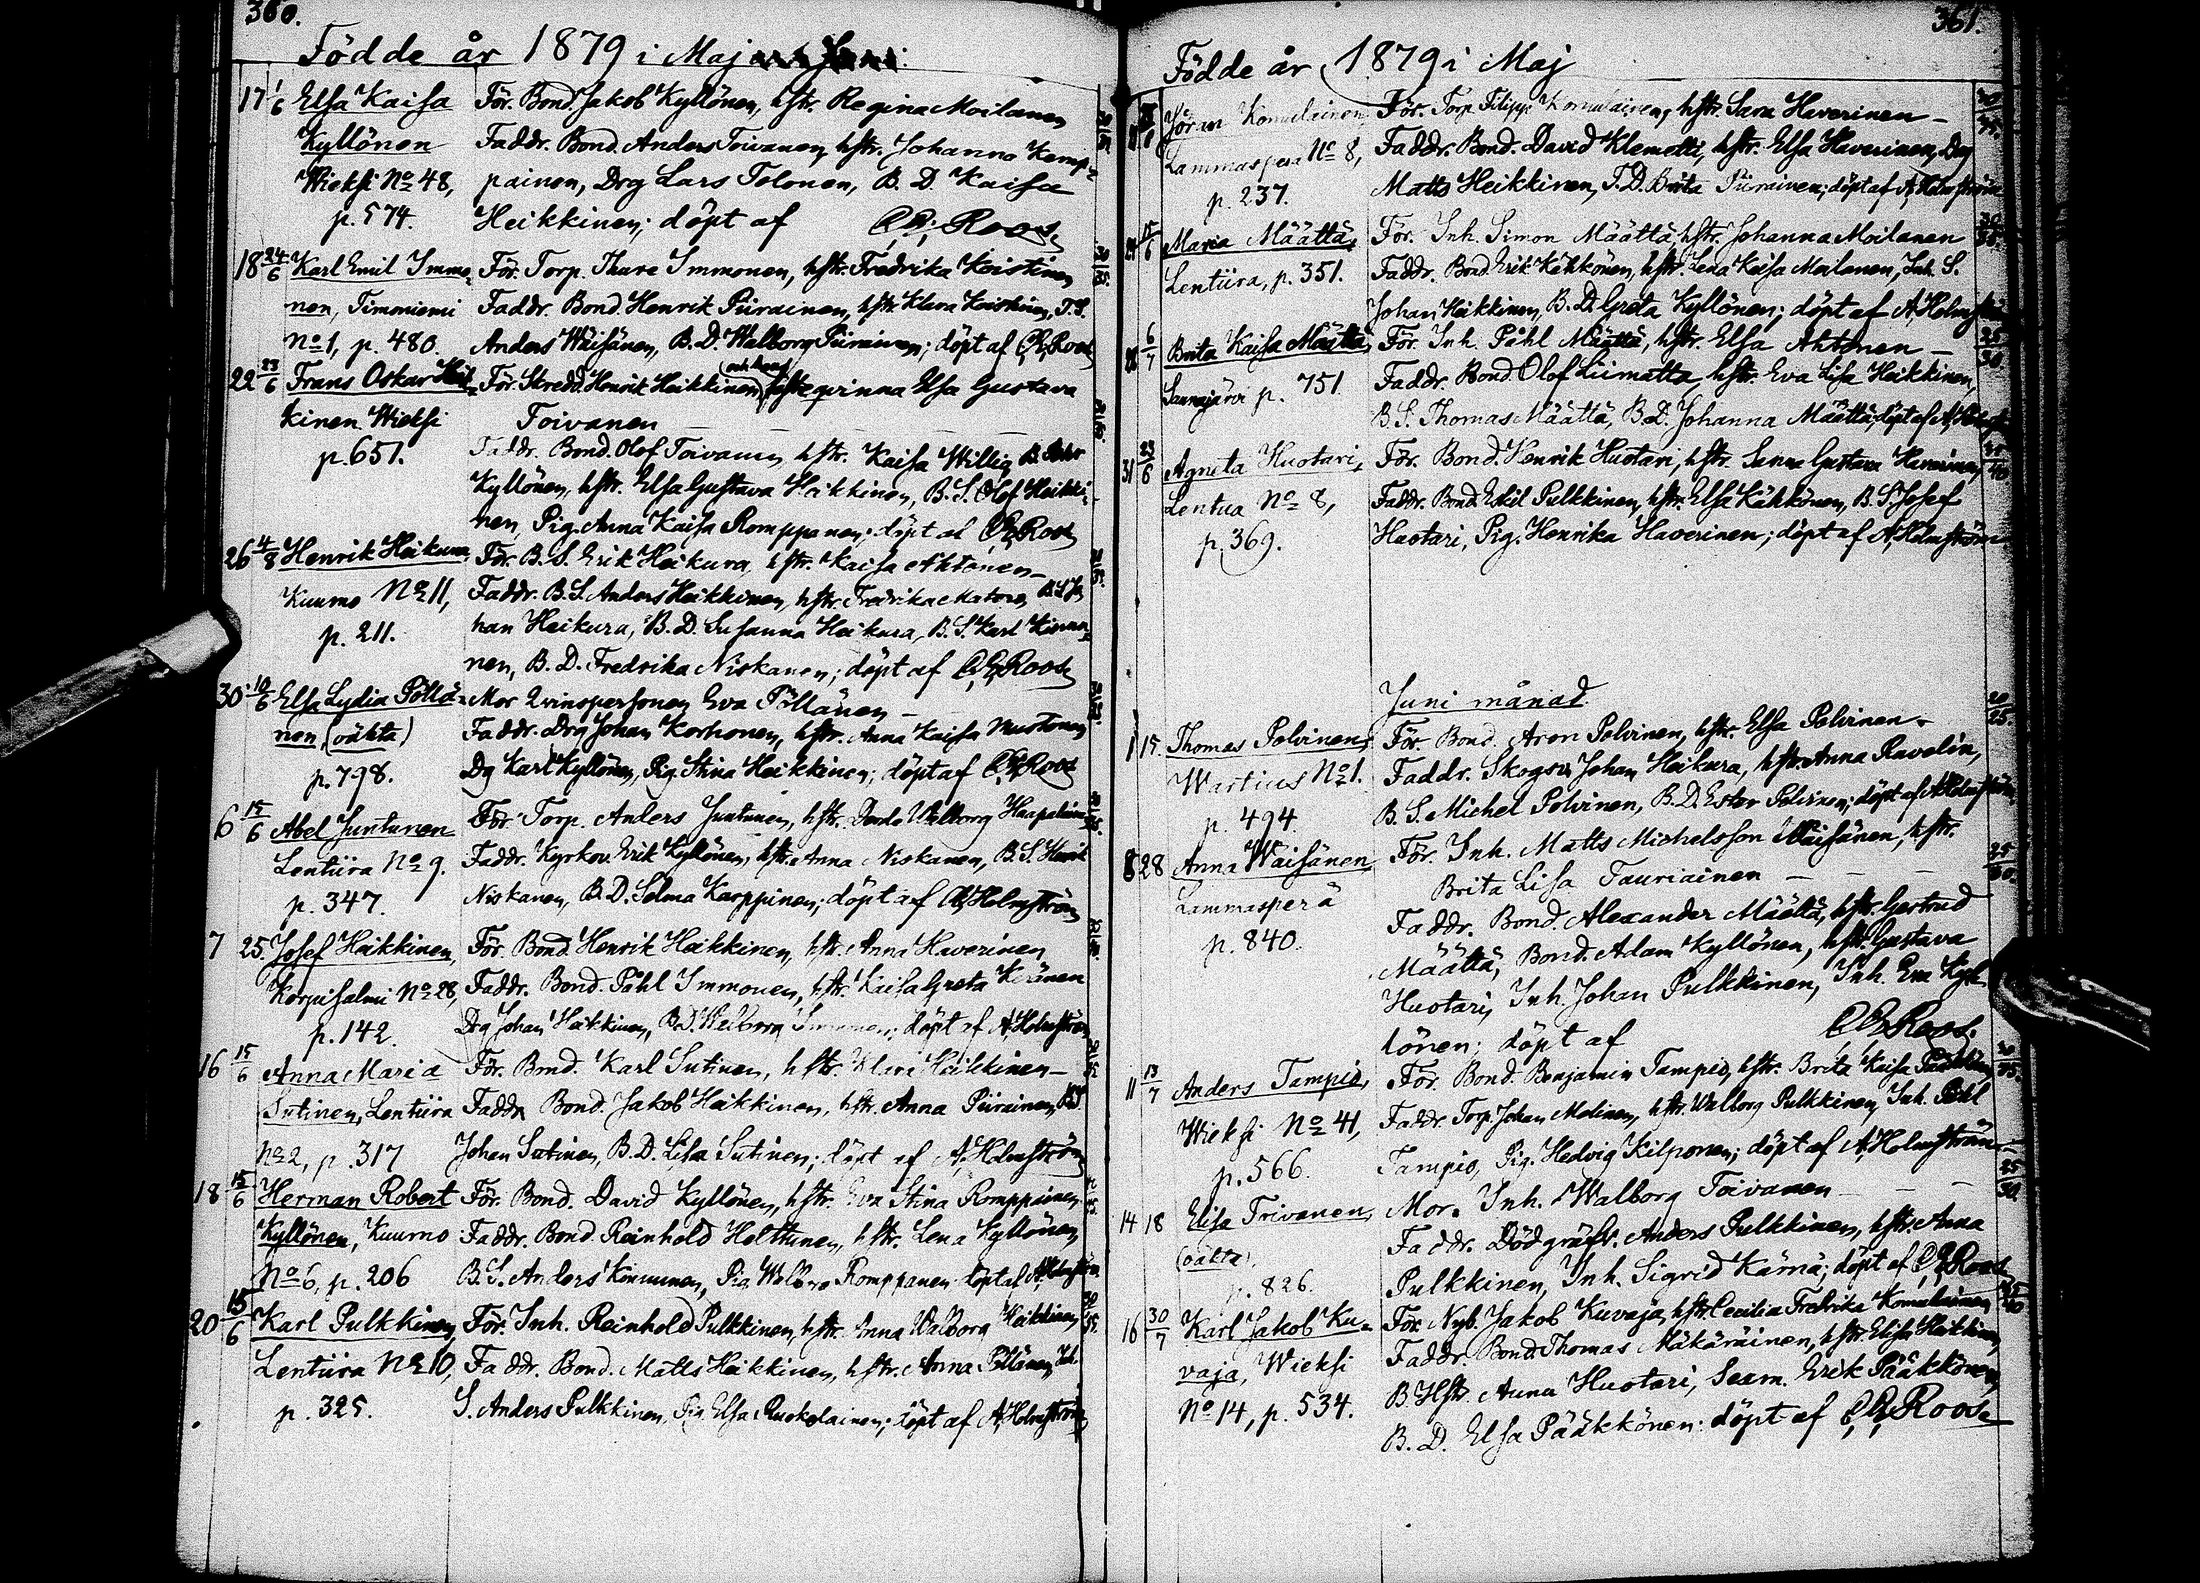 360.
Födde år 1879 i Maj
17 1/6 Elsa Kaisa För. Bond. Jakob Kyllönen, hstr. Regina Moilanen
Kyllönen Faddr. Bond. Anders Toivanen, hstr. Johanna Kemp-
Wieksi No 48, painen, Drg Lars Tolonen, B. D. Kaisa
p. 574. Heikkinen; döpt af Roos
18 24/6 Karl Emil Immo- För. Torp. Thure Immonen, hstr. Fredrika Koistinen
nen, Timoniemi Faddr. Bond. Henrik Piirainen, hstr. Klara Koistinen, T.S.
No 1, p. 480. Anders Wäisänen, B. D. Walborg Piirainen; döpt af Roos
22 23/6 Frans Oskar Heik- För. Skredd. Henrik Heikkinen (och hans) qvinna Elsa Gustava
kinen Wieksi Toivanen
p. 651. Faddr. Bond. Olof Toivanen, hstr. Kaisa Willig, B.
Kyllönen, hstr. Elsa Gustava Heikkinen, B. S. Olof Heikki-
nen, Pig. Anna Kaisa Romppanen; döpt af Roos
26 4/8 Henrik Heikura, För. B. S. Erik Heikura, hstr. Kaisa Ahtonen
Kuumo No 11, Faddr. B. S. Anders Heikkinen, hstr. Fredrika B. S. Jo-
p. 211. han Heikura, B. D. Susanna Heikura, B. S. Karl Kinnu-
nen, B. D. Fredrika Niskanen; döpt af Roos
30 10/6 Elsa Lydia Pöllä- Mor Qvinspersonen Eva Pöllänen
nen, (oäkta) Faddr. Drg Johan Korhonen, hstr. Anna Kaisa Mustonen
p. 798. Dg Karl Kyllönen, Pig. Stina Heikkinen; döpt af Roos
6 15/6 Abel Juntunen För. Torp. Anders Juntunen, hstr. Walborg Haapalainen
Lentiira No 9. Faddr. Kyrkov. Erik Kyllönen, hstr. Anna Niskanen, B. S. Henrik
p. 347. Niskanen, B. D. Selma Karppinen; döpt af Holmström
7 25. Josef Heikkinen, För. Bond. Henrik Heikkinen, hstr. Anna Haverinen
Korpisalmi No 28, Faddr. Bond. Påhl Immonen, hstr. Kaisa Greta
p. 142. Dg Johan Heikkinen, B. D. Walborg Immonen; döpt af A. Holmström
16 15/6 Anna Maria För. Bond. Karl Sutinen, hstr. Heikkinen
Sutinen, Lentiira Faddr. Bond. Jakob Heikkinen, hstr. Anna Piirainen, B. S.
No 2, p. 317 Johan Sutinen, B. D. Lisa Sutinen; döpt af A. Holmström
18 15/6 Herman Robert För. Bond. David Kyllönen, hstr. Eva Stina Romppainen
Kyllönen, Kuumo Faddr. Bond. Reinhold Holttunen, hstr. Lena Kyllönen,
No 6, p. 206 B. S. Anders Kinnunen, Pig. Walborg Romppanen; döpt af A. Holmström
20 15/6 Karl Pulkkinen, För. Inh. Reinhold Pulkkinen, hstr. Anna Walborg Heikkinen
Lentiira No 10, Faddr. Bond. Matts Heikkinen, hstr. Anna Pöllänen, Inh.
p. 325. S. Anders Pulkkinen, Pig. Elsa Ruokolainen; döpt af A. Holmström
361.
Födde år 1879 i Maj
Göran Komulainen För. Torp. Filipp Komulainen, hstr. Sara Haverinen
Lammasperä No 8, Faddr. Bond. David Klemetti, hstr. Elsa Haverinen, Drg
p. 237. Matts Heikkinen, T. D. Brita Piirainen; döpt af A. Holmström
24 15/6 Maria Määttä, För. Inh. Simon Määttä, hstr. Johanna Moilanen
Lentiira, p. 351. Faddr. Bond. Erik Kähkönen, hstr. Lena Kaisa Moilanen, Inh. S.
Johan Heikkinen, B. D. Greta Kyllönen; döpt af A. Holmström
28 6/7 Brita Kaisa Määttä, För. Inh. Påhl Määttä, hstr. Elsa Ahtonen
Saunajärvi p. 751 Faddr. Bond. Olof Liimatta, hstr. Eva Lisa Heikkinen,
B. S. Thomas Määttä, B. D. Johanna Määttä; döpt af
31 23/6 Agneta Huotari, För. Bond. Henrik Huotari, hstr. Sanna Gustava Haverinen,
Lentua No 8, Faddr. Bond. Eskil Pulkkinen, hstr. Elsa Kähkönen, B. S. Josef
p. 369. Huotari, Pig. Henrika Haverinen; döpt af A. Holmström
Juni månad.
1 15. Thomas Polvinen, För. Bond. Aron Polvinen, hstr. Elsa Polvinen
Wartius No 1. Faddr. Skogsv. Johan Heikura, hstr. Anna Ravelin,
p. 494. B. S. Michel Polvinen, B. D. Ester Polvinen; döpt af A. Holmström
8 28 Anna Wäisänen För. Inh. Matts Michelsson Wäisänen, hstr.
Lammasperä Brita Lisa Tauriainen
p. 840. Faddr. Bond. Alexander Määttä, hstr. Gertrud
Määttä, Bond. Adam Kyllönen, hstr. Gustava
Huotari, Inh. Johan Pulkkinen, Inh. Eva Kyl-
lönen; döpt af Roos
11 13/7 Anders Tampio, För. Bond. Benjamin Tampio, hstr. Brita Kaisa Pääkkönen
Wieksi No 41, Faddr. Torp. Johan Molinen, hstr. Walborg Pulkkinen, Inh. Påhl
p. 566. Tampio, Pig. Hedvig Kilponen; döpt af A. Holmström
14 18 Elisa Toivanen, Mor. Inh. Walborg Toivanen
(oäkta), Faddr. Dödgräfv. Anders Pulkkinen, hstr. Anna
p. 826. Pulkkinen, Inh. Sigrid Kärnä; döpt af Roos
16 30/7 Karl Jakob Ku- För. Nyb. Jakob Kuvaja, hstr. Cecilia Fredrika Komulainen
vaja, Wieksi Faddr. Bond. Thomas Mäkäräinen, hstr. Elisa Heikkinen,
No 14, p. 534. B. Hstr. Anna Huotari, Seam. Erik Pääkkönen,
B. D. Elsa Pääkkönen; döpt af Roos